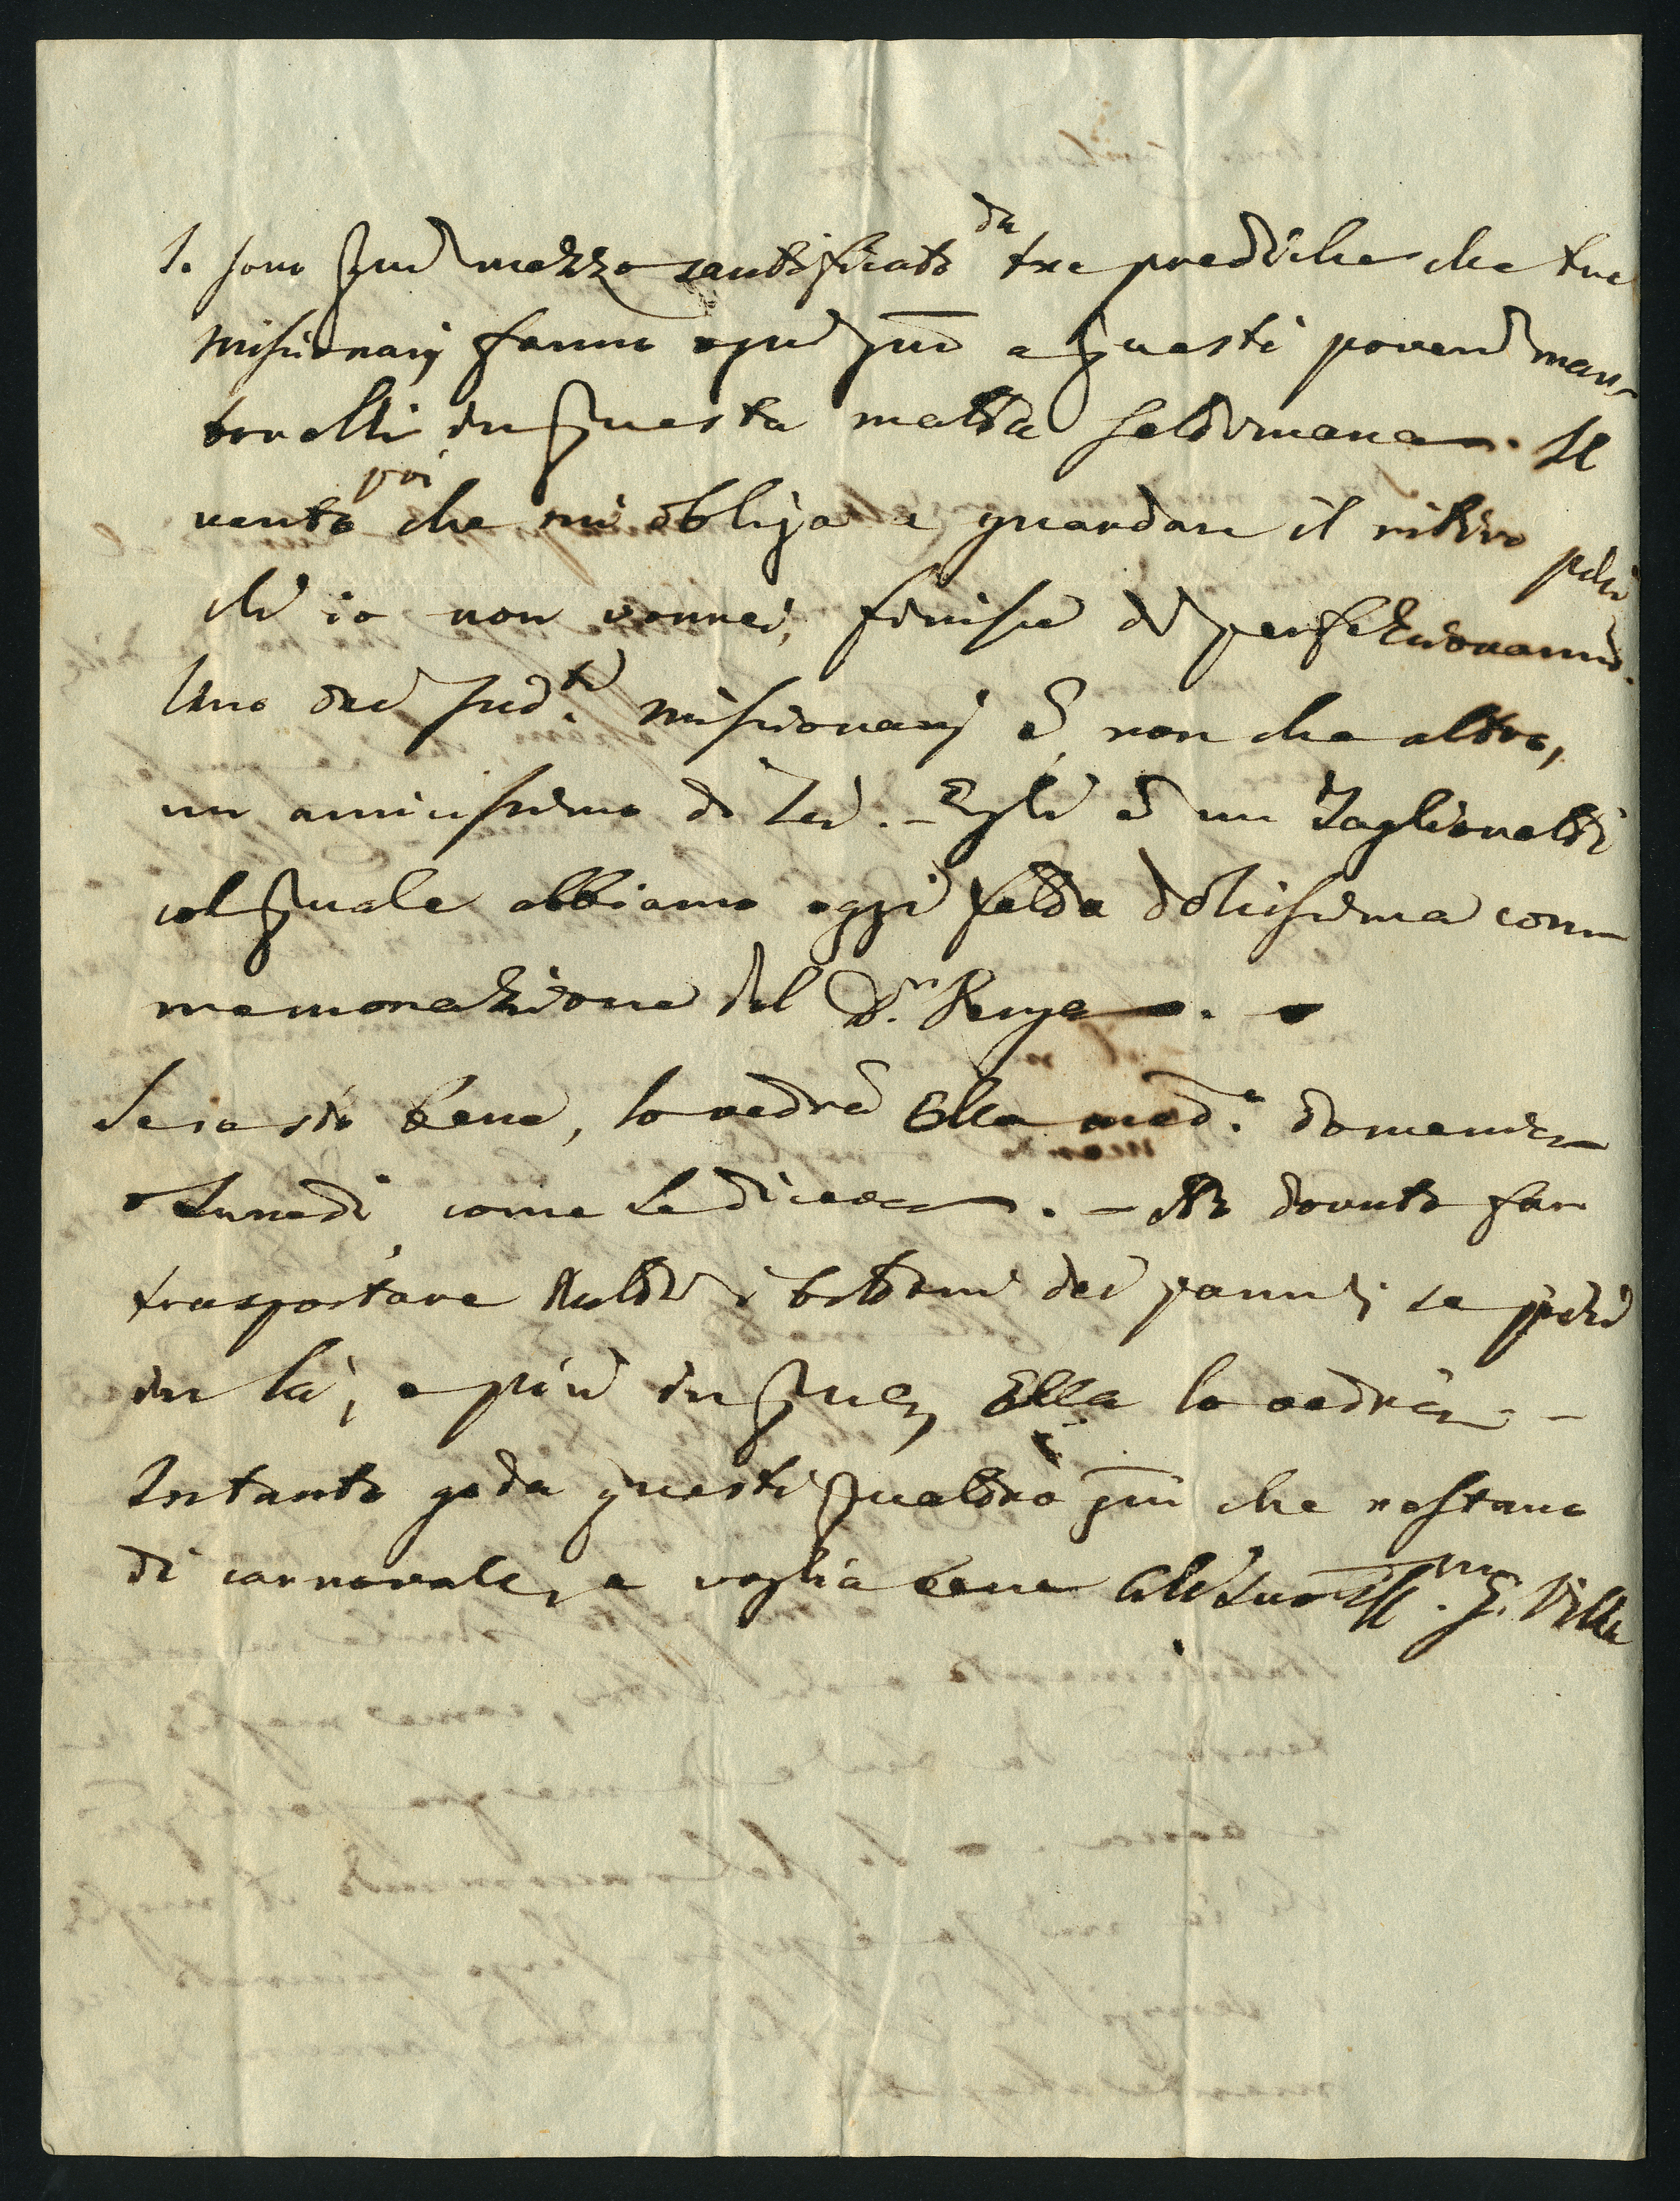 Io sono qui mezzo santificato da tre prediche che tre
missionarj fanno ogni gno a questi poveri man-
tovelli in questa matta settimana. Il
vento poi che mi obliga a guardare il ritiro più
ch'io non vorrei, finisce di perfezionarmi.
Uno dei sud.ti missionarj è, non che altro,
un amicissimo di Lei. - Egli è un Taglionetti
col quale abbiamo oggi fatta dolcissima com-
memorazione del D.r
Se io sto bene, lo vedrà Ella med.a domenica
o Lunedì, come Le diceva. - Ho dovuto far
trasportare tutti i bottoni dei panni, se più
in là, o più in qua, Ella lo vedrà. -
Intanto goda questi quattro gni che restano
di carnovale, e voglia bene al Suo Aff.mo G. Villa